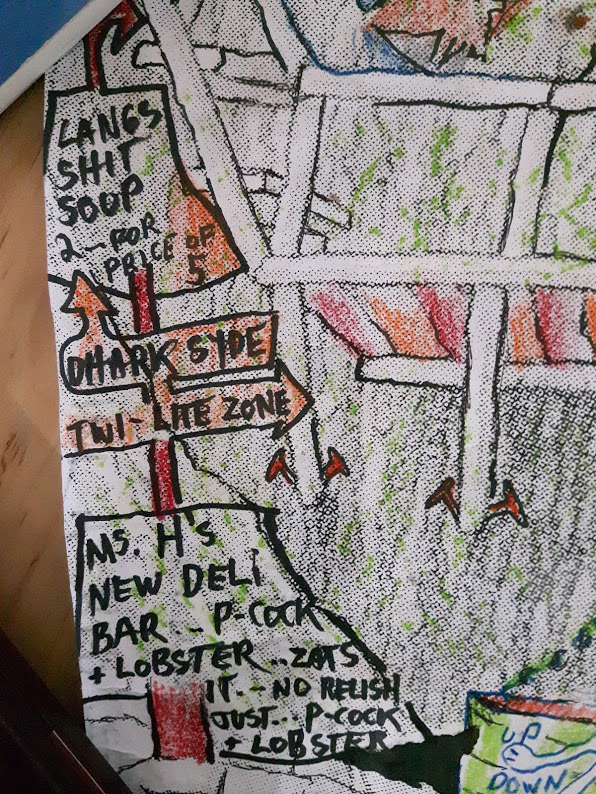 LANGS
SHIT
SOUP
2 - FOR
PRICE OF
5
DHARK SYDE
TWI-LITE ZONE
Ms. H's
NEW DELi
BAR... P-COCK
+ LOBSTER..ZATS
IT.- NO RELISH
JUST... P-COCK
+ LOBSTER
UP
DOWN